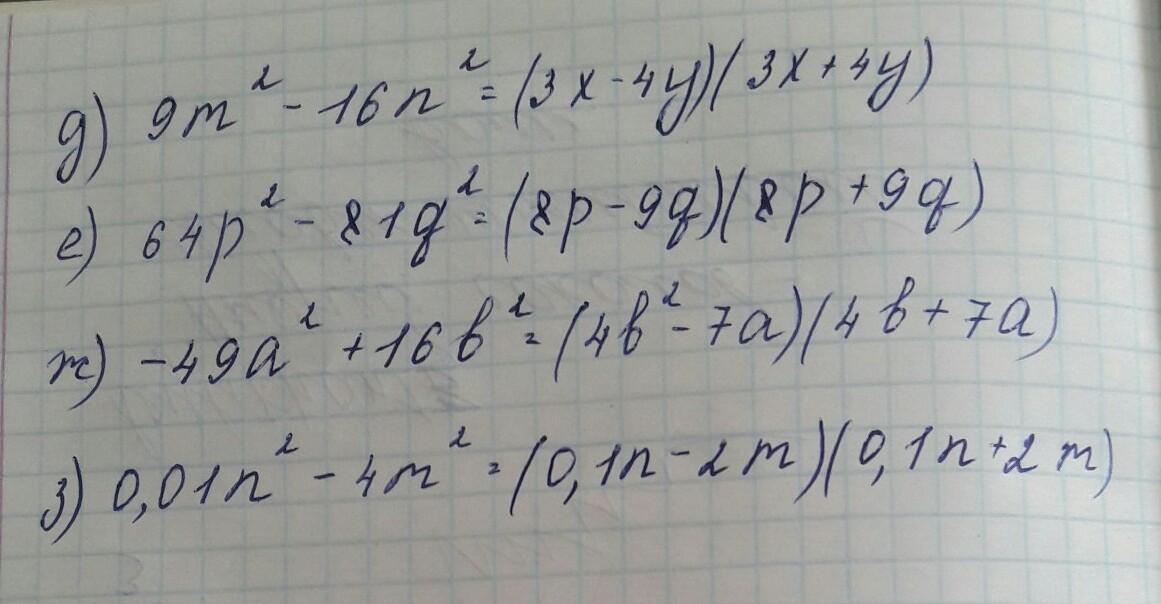 д) 9m² - 16n² = (3x - 4y)(3x + 4y)
е) 64p² - 81q² = (8p - 9q)(8p + 9q)
ж) -49a² + 16b² = (4b² - 7a)(4b + 7a)
з) 0,01n² - 4m² = (0,1n - 2m)(0,1n + 2m)